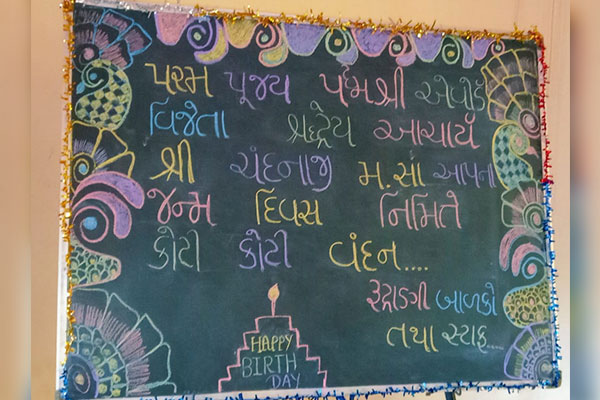 પરમ પૂજય પર્દમશ્રી એવોર્ડ
વિજેતા શ્રદ્ધેય આચાર્ય
શ્રી ચંદનાજી મ.સા આપના
જન્મ દિવસ નિમિતે
કોટી કોટી વંદન....
બાળકો
તથા સ્ટાફ....
HAPPY
BIRTH
DAY